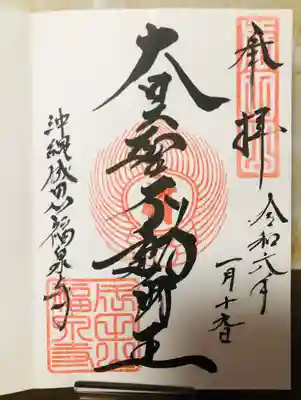 奉拝
令和六年
一月十
大日大聖不動明王
沖縄成田山福泉寺